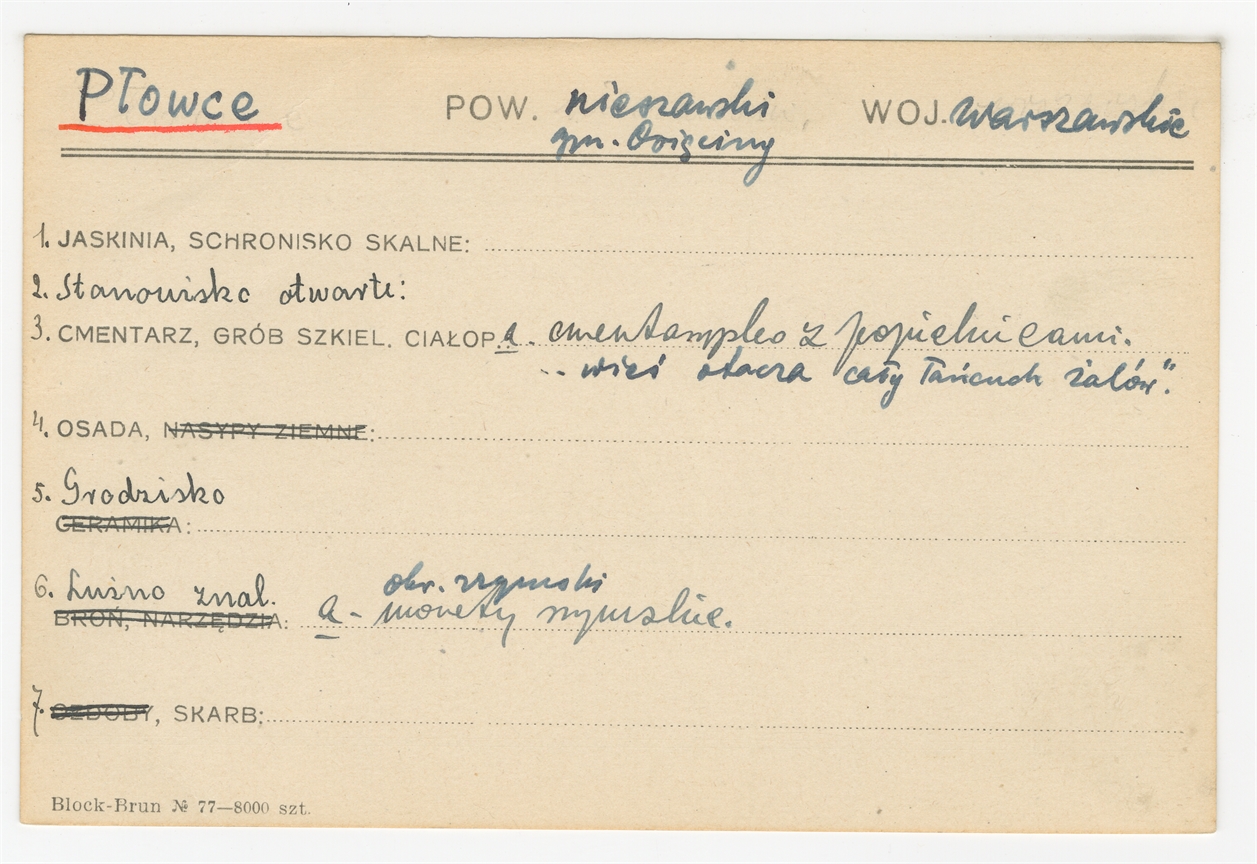 Płowce POW. nieszawski WOJ. Warszawskie
gm. Osięciny
1. JASKINIA, SCHRONISKO SKALNE:
2. Stanowisko otwarte:
3. CMENTARZ, GRÓB SZKIEL. CIAŁOP. a. cmentarzysko z popielnicami.
wieś otacza cały łańcuch żalów".
4. OSADA, NASYPY ZIEMNE:
5. Grodzisko
CERAMIKA:
6. Luźno znal. okr. rzymski
BROŃ, NARZĘDZIA: a - monety rzymskie.
7. OZDOBY, SKARB:
Block-Brun № 77—8000 szt.